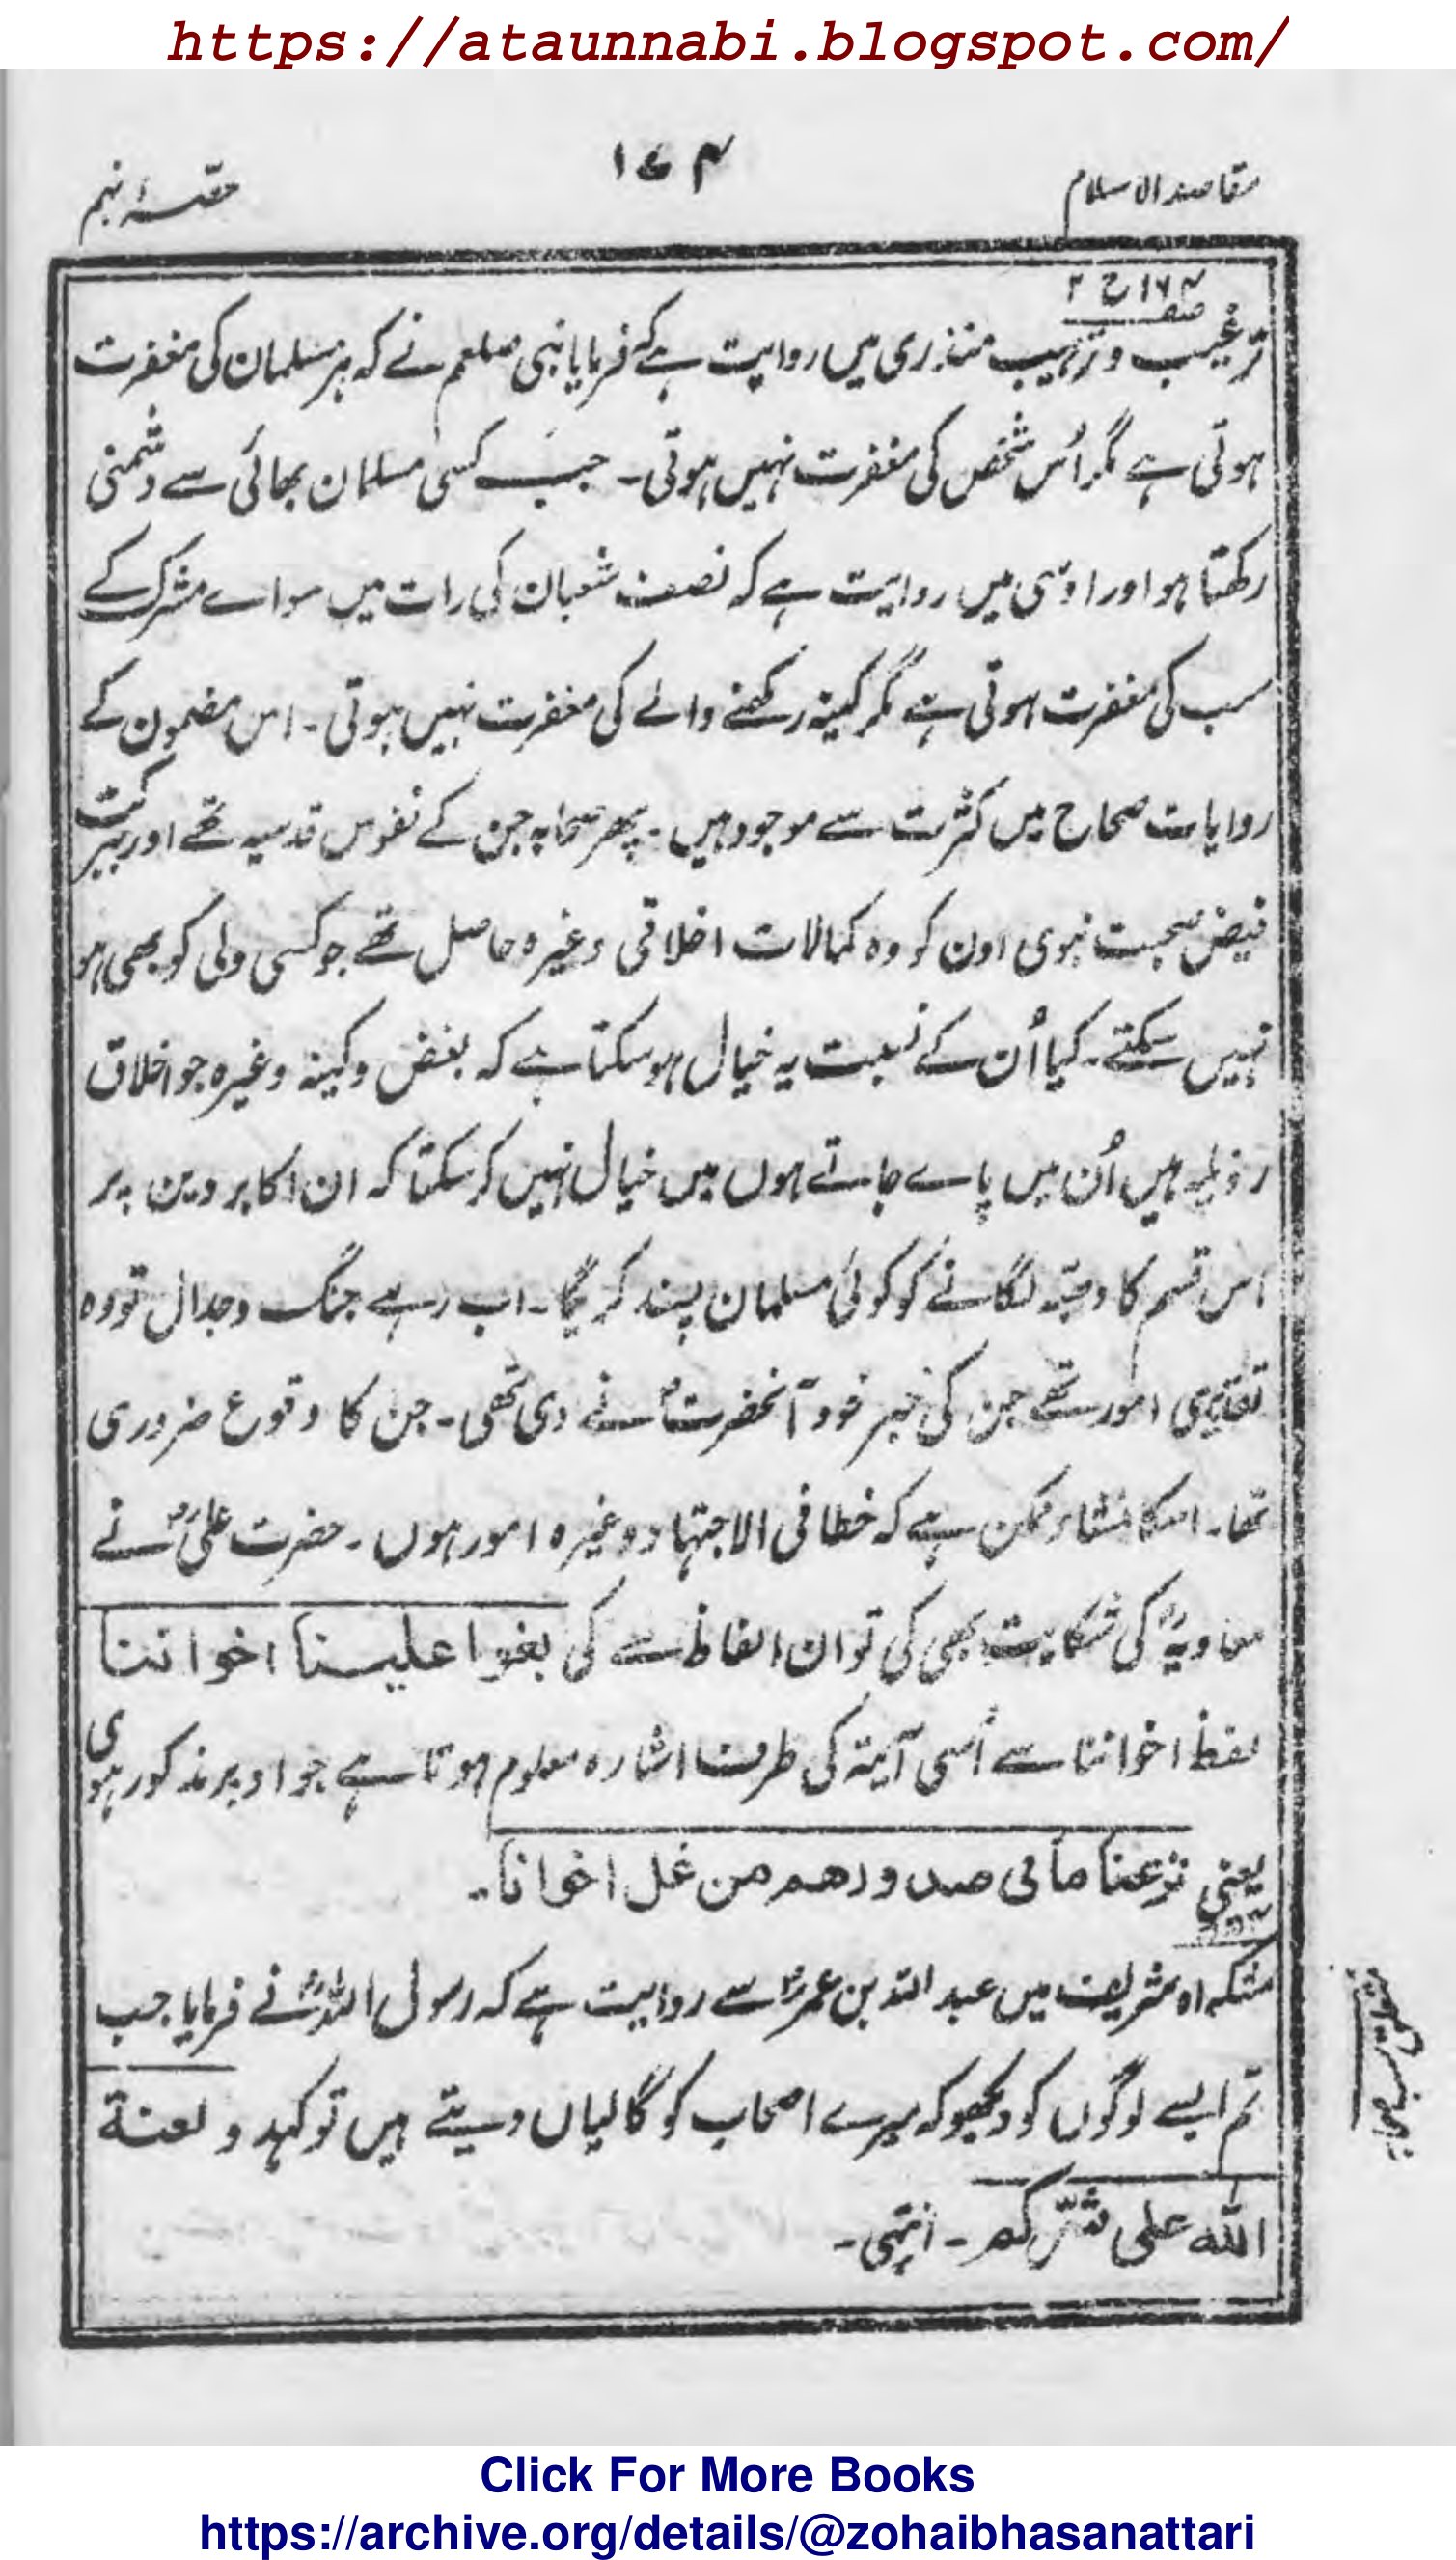 https://ataunnabi.blogspot.com/
مقاصد الاسلام
۱۷۴
حصۂ نہم
صفحہ ۱۶۴ ج ۲
ترغیب و ترہیب منذری میں روایت ہے کہ فرمایا نبی صلعم نے کہ ہر مسلمان کی مغفرت
ہوتی ہے مگر اُس شخص کی مغفرت نہیں ہوتی۔ جب کسی مسلمان بھائی سے دشمنی
رکھتا ہو اور اوسی میں روایت ہے کہ نصف شعبان کی رات میں سواے مشرک کے
سب کی مغفرت ہوتی ہے مگر کینہ رکھنے والے کی مغفرت نہیں ہوتی۔ اس مضمون کے
روایات صحاح میں کثرت سے موجود ہیں۔ پھر صحابہ جن کے نفوس قدسیہ تھے اور ببرکت
فیض صحبت نبوی اون کو وہ کمالات اخلاقی وغیرہ حاصل تھے جو کسی ولی کو بھی ہو
نہیں سکتے۔ کیا اُن کے نسبت یہ خیال ہوسکتا ہے کہ بغض وکینہ وغیرہ جو اخلاق
رذیلہ ہیں اُن میں پاے جاتے ہوں میں خیال نہیں کرسکتا کہ ان اکابر دین پر
اس قسم کا دھبّہ لگانے کو کوئی مسلمان پسند کریگا۔ اب رہے جنگ وجدال تو وہ
تقدیری امور تھے جن کی خبر خود آنحضرتؐ نے دی تھی۔ جن کا وقوع ضروری
تھا۔ اسکا منشاء ممکن ہے کہ خطا فی الاجتہاد وغیرہ امور ہوں۔ حضرت علیؓ نے
معاویہؓ کی شکایت بھی کی تو ان الفاظ سے کی بغوا علینا اخواننا
لفظ اخواننا سے اُسی آیتہ کی طرف اشارہ معلوم ہوتا ہے جو اوپر مذکور ہوی
یعنی نزعنا مافی صدورهم من غل اخوانا۔
مشکواہ شریف میں عبد اللہ بن عمرؓ سے روایت ہے کہ رسول اللہؐ نے فرمایا جب
تم ایسے لوگوں کو دیکھو کہ میرے اصحاب کو گالیاں دیتے ہیں تو کہدو لعنة
الله علی شرّکم۔ انتہی۔
Click For More Books
https://archive.org/details/@zohaibhasanattari